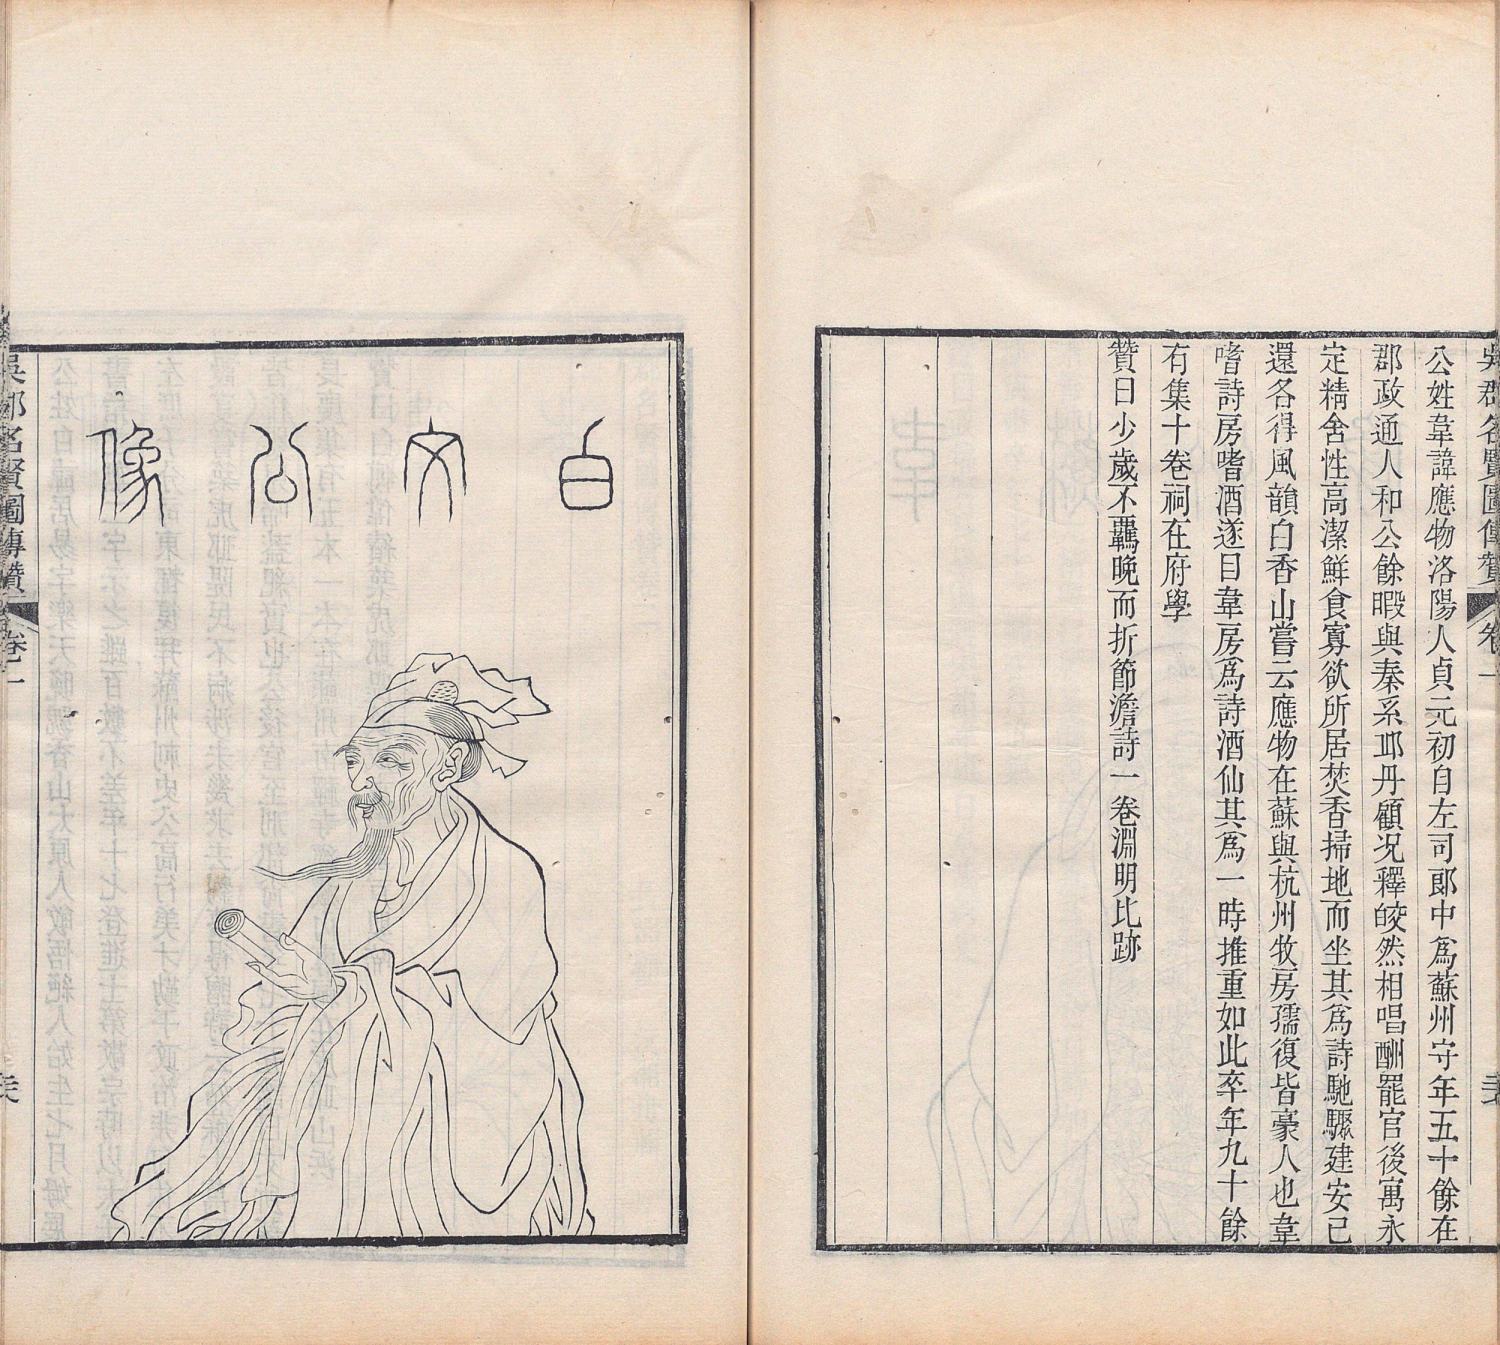 吳郡名賢圖傳贊
卷一
公姓韋諱應物洛陽人貞元初自左司郞中爲蘇州守年五十餘在
郡政通人和公餘暇與秦系邱丹顧况釋皎然相唱酬罷官後寓永
定精舍性高潔鮮食寡欲所居焚香掃地而坐其爲詩馳驟建安已
還各得風韻白香山嘗云應物在蘇與杭州牧房孺復皆豪人也韋
嗜詩房嗜酒遂目韋房爲詩酒仙其爲一時推重如此卒年九十餘
有集十卷祠在府學
贊曰少歲不羈晩而折節澹詩一卷淵明比跡
白文公像
吳郡名賢圖傳贊
卷一